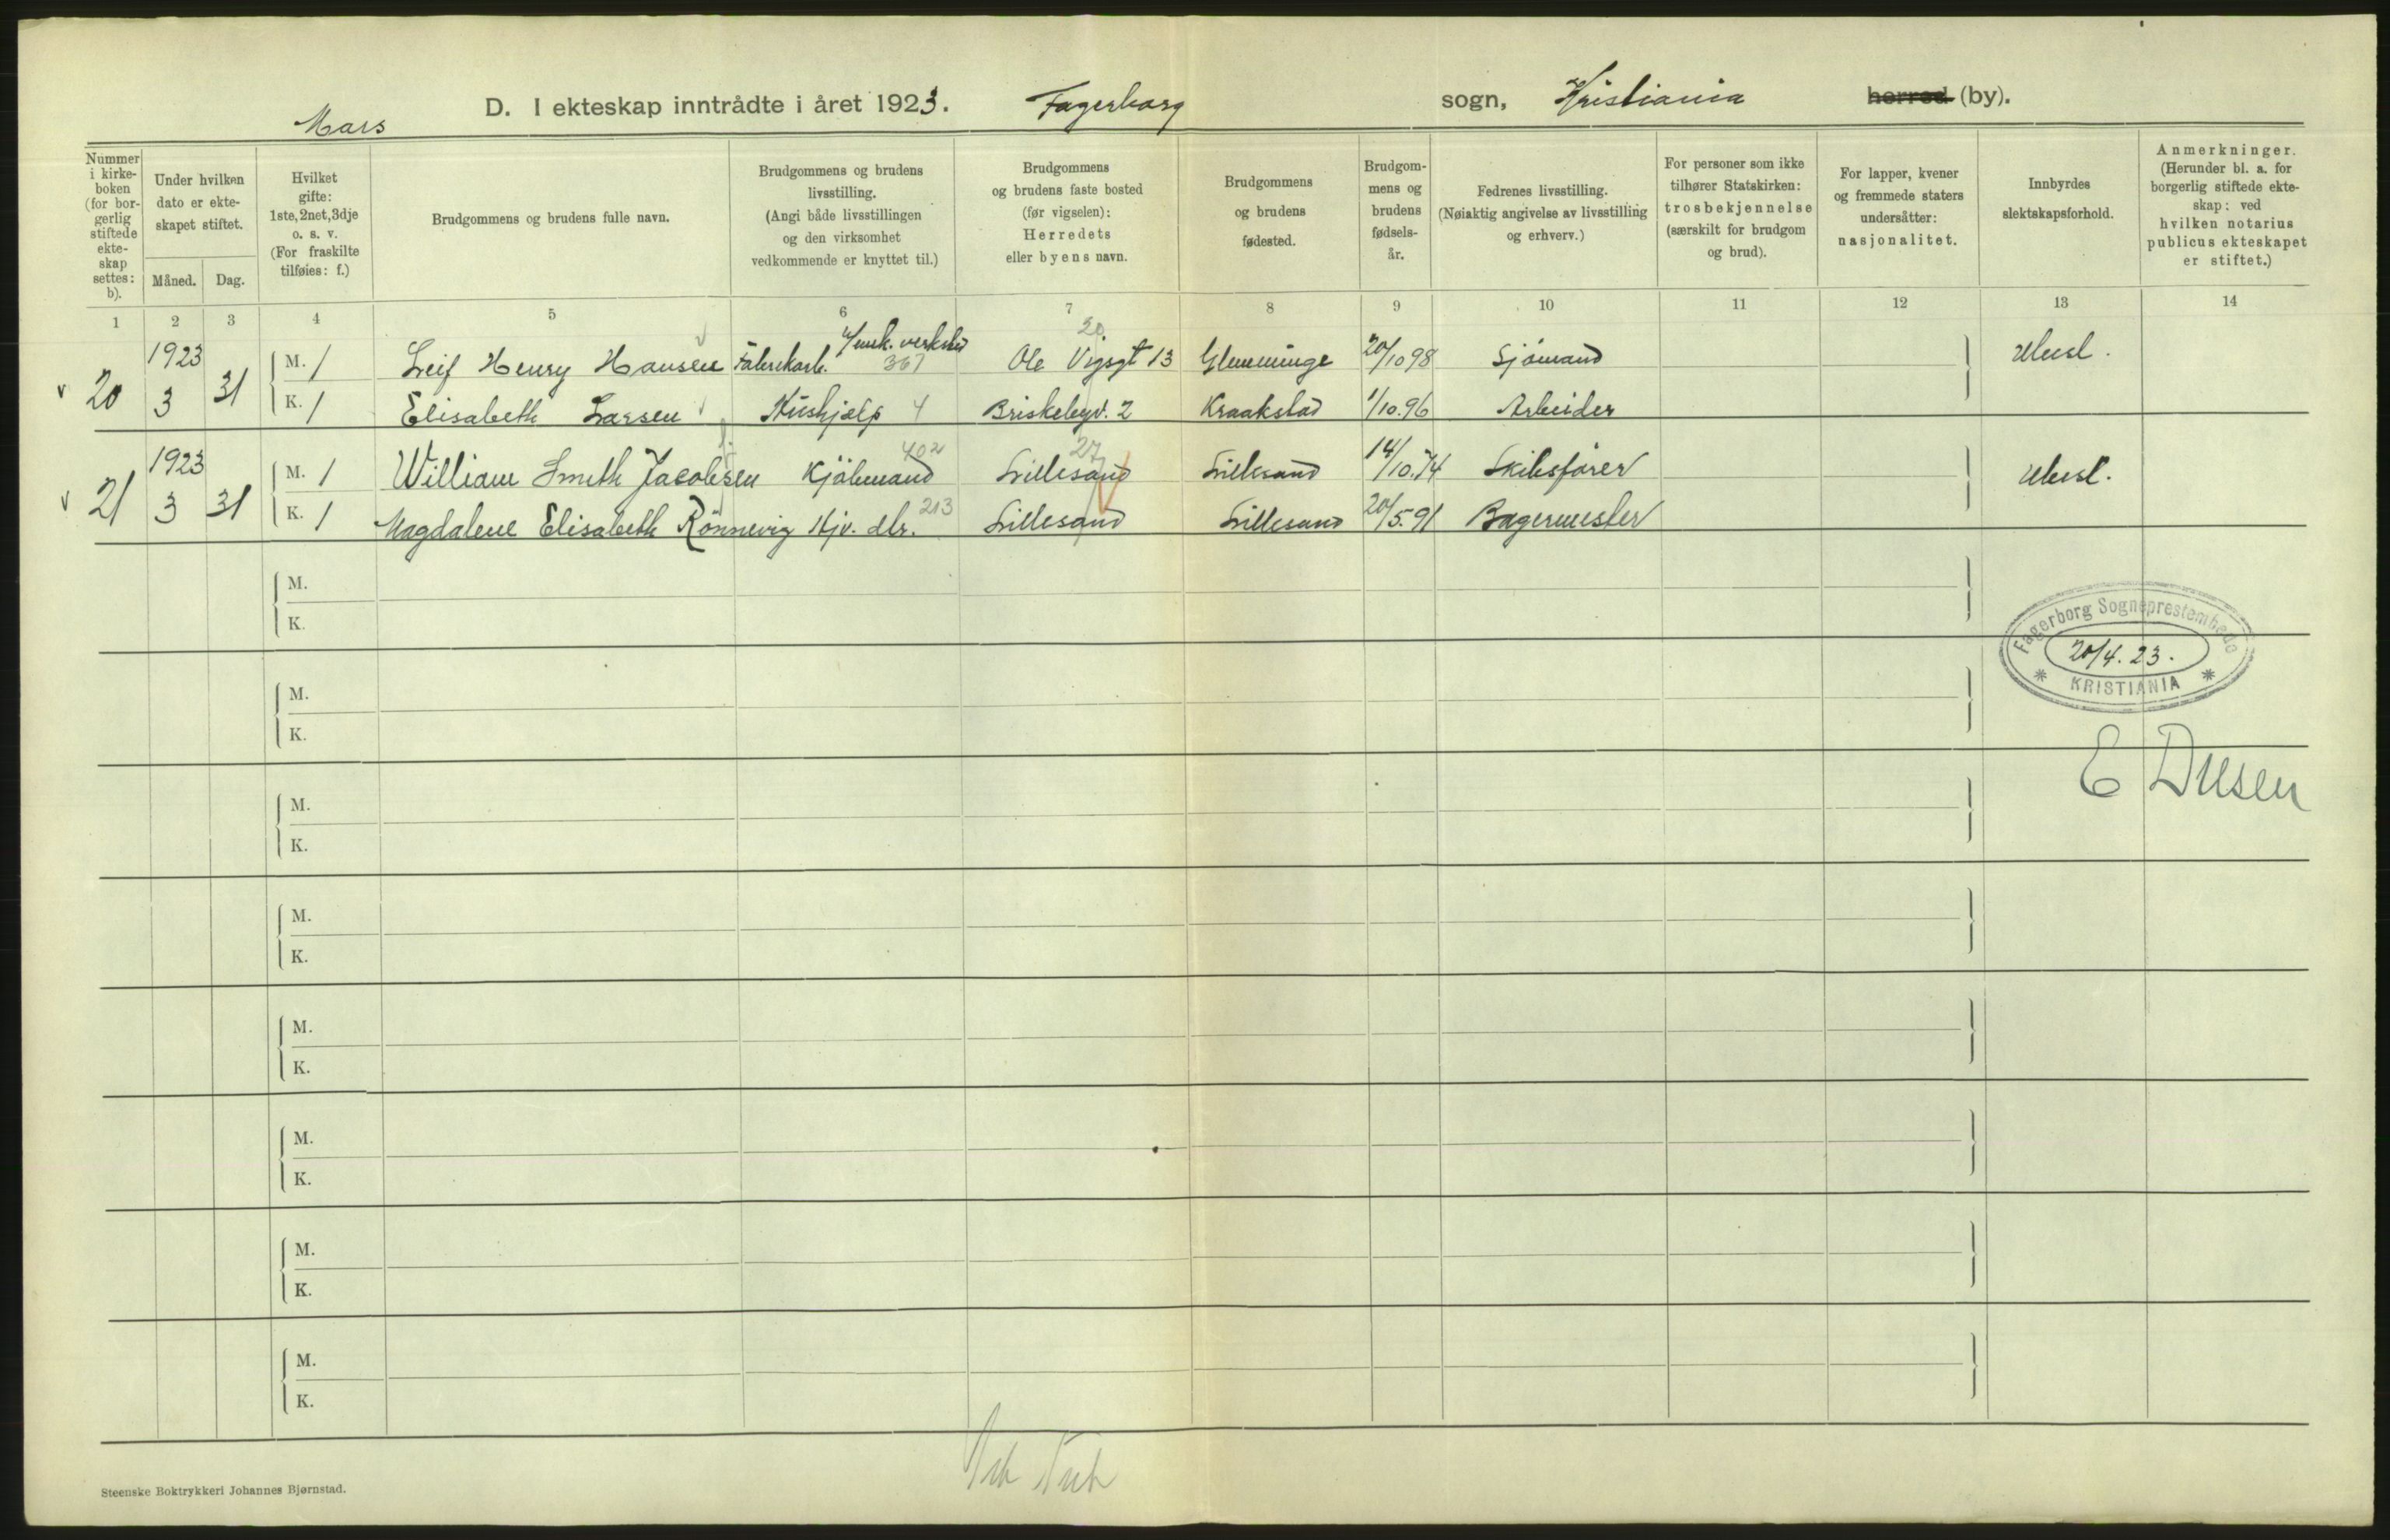 Mars D. I ekteskap inntrådte i året 1923. Fagerborg sogn, Kristiania herred (by).
Nummer i kirkeboken (for borgerlig stiftede ekteskap settes: b).
Under hvilken dato er ekteskapet stiftet.
Måned. Dag.
Hvilket gifte: 1ste, 2net, 3dje o. s. v. (For fraskilte tilføies: f.)
Brudgommens og brudens fulle navn.
Brudgommens og brudens livsstilling. (Angi både livsstillingen og den virksomhet vedkommende er knyttet til.)
Brudgommens og brudens faste bosted (før vigselen): Herredets eller byens navn.
Brudgommens og brudens fødested.
Brudgommens og brudens fødselsår.
Fedrenes livsstilling. (Nøiaktig angivelse av livsstilling og erhverv.)
For personer som ikke tilhører Statskirken: trosbekjennelse (særskilt for brudgom og brud).
For lapper, kvener og fremmede staters undersåtter: nasjonalitet.
Innbyrdes slektskapsforhold.
Anmerkninger. (Herunder bl. a. for borgerlig stiftede ekteskap: ved hvilken notarius publicus ekteskapet er stiftet.)
1 2 3 4 5 6 7 8 9 10 11 12 13 14
v 20 1923 3 31 M. 1 Leif Henry Hansen Fabrikarb. v/mek. verksted 367 Ole Vigsgt 13 20. Glemminge 20/10 98 Sjömand Ubesl.
K. 1 Elisabeth Larsen Hushjælp 4 Briskebyv. 2 Kraakstad 1/10.96 Arbeider
v 21 1923 3 31 M. 1 William Smith Jacobsen Kjöbmand 402 Lillesand 27 Lillesand 14/10.74 Skibsfører Ubesl.
K. 1 Magdalene Elisabeth Rönnevig Hjv. dtr. 213 Lillesand Lillesand 20/5.91 Bagermester
M.
K.
Fagerborg Sogneprestembede
20/4. 23.
* KRISTIANIA *
M.
K.
E
M.
K.
M.
K.
M.
K.
M.
K.
M.
K.
M.
K.
Steenske Boktrykkeri Johannes Bjørnstad.